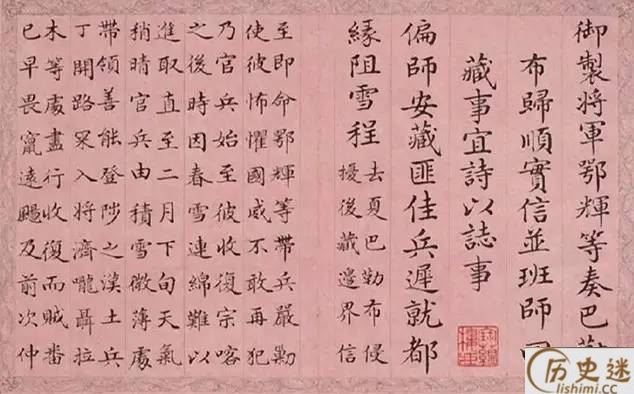 御製將軍鄂輝等奏巴勒
布歸順實信並班師
藏事宜詩以誌事
偏師安藏匪佳兵遲就都
緣阻雪程
去夏巴勒布侵
擾後藏邊界信
至即命鄂輝等帶兵嚴勦
使彼怖懼國威不敢再犯
乃官兵始至彼收復宗喀
之後時因春雪連綿難以
進取直至二月下旬天氣
稍晴官兵由積雪微薄處
帶領善能登陟之漢土兵
丁開路罙入將濟嚨聶拉
木等處盡行收復而賊番
已早畏竄遠颺及前次仲
历史迷
lishimi.cc